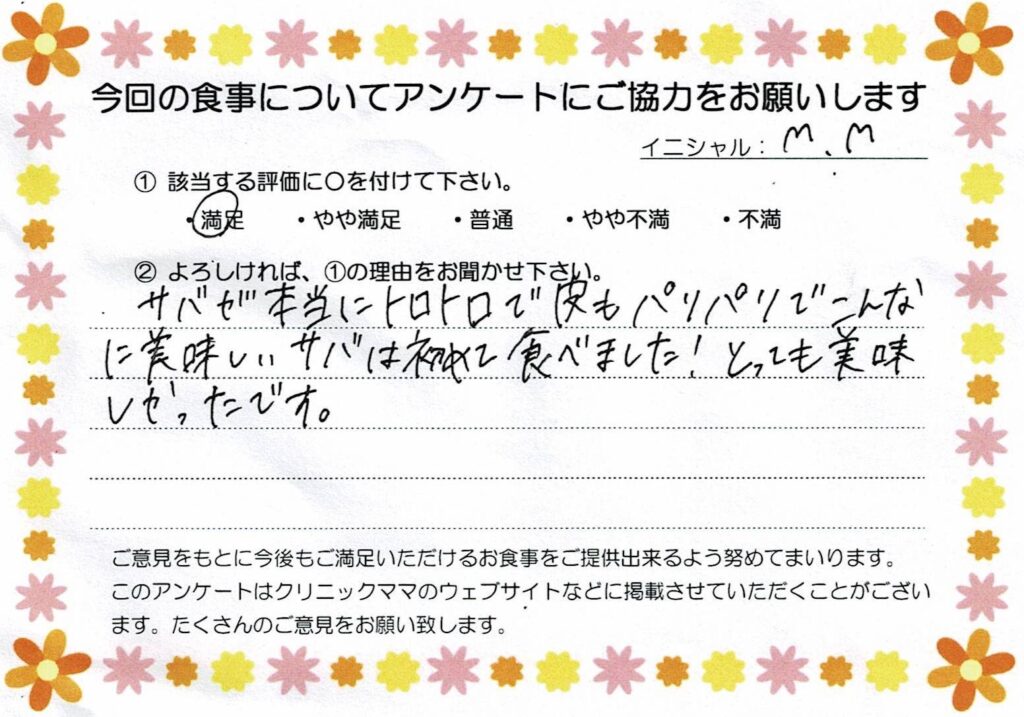 今回の食事についてアンケートにご協力をお願いします
イニシャル： M.M
① 該当する評価に〇を付けて下さい。
・満足 ・やや満足 ・普通 ・やや不満 ・不満
② よろしければ、①の理由をお聞かせ下さい。
サバが本当にトロトロで皮もパリパリでこんな
に美味しいサバは初めて食べました！とっても美味
しかったです。
ご意見をもとに今後もご満足いただけるお食事をご提供出来るよう努めてまいります。
このアンケートはクリニックママのウェブサイトなどに掲載させていただくことがござい
ます。たくさんのご意見をお願い致します。